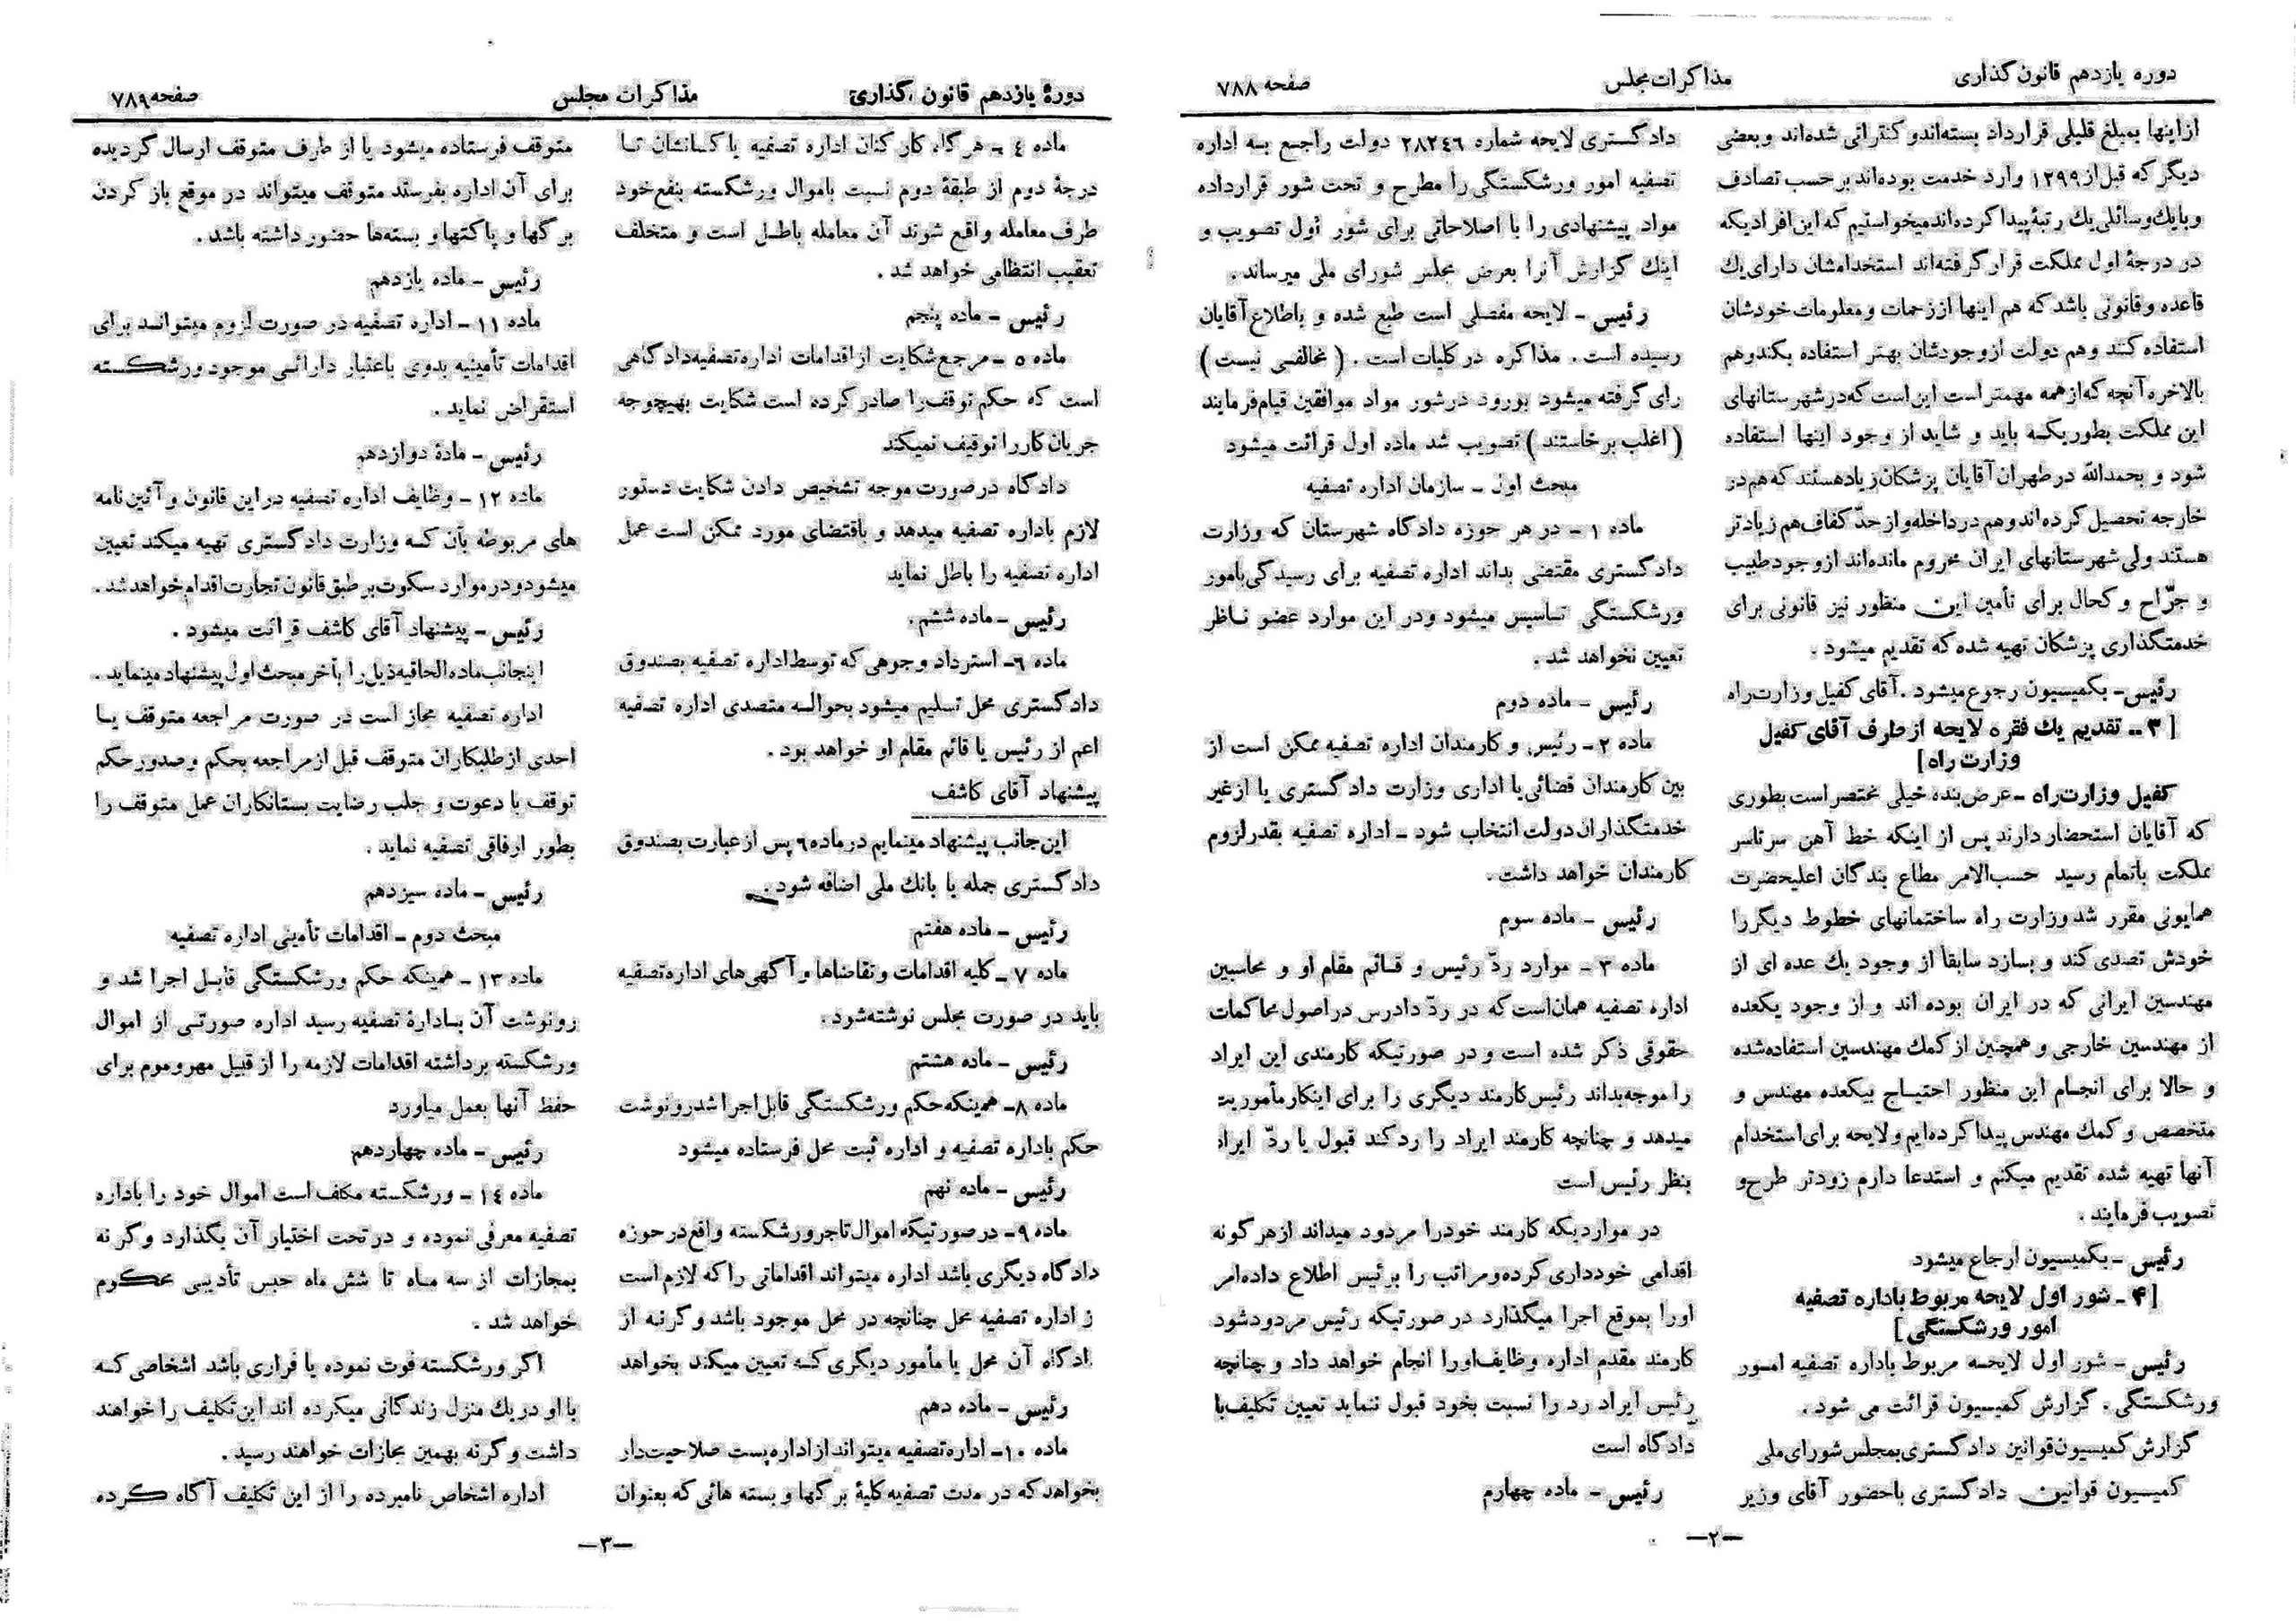 دوره یازدهم قانون گذاری
مذاکرات مجلس
صفحه ۷۸۸
از اینها بمبلغ قلیلی قرارداد بسته‌اند و کنتراتی شده‌اند و بعضی
دیگر که قبل از ۱۲۹۹ وارد خدمت بوده‌اند بر حسب تصادف
و بایك وسائلی یك رتبهٔ پیدا کرده‌اند میخواستیم که این افرادیکه
در درجهٔ اول مملکت قرار گرفته‌اند استخدامشان دارای یك
قاعده و قانونی باشد که هم اینها از زحمات و معلومات خودشان
استفاده کنند وهم دولت از وجودشان بهتر استفاده بکند وهم
بالاخره آنچه که از همه مهمتر است این است که در شهرستانهای
این مملکت بطوریکه باید و شاید از وجود اینها استفاده
شود و بحمدالله در طهران آقایان پزشکان زیاد هستند که هم در
خارجه تحصیل کرده‌اند وهم در داخله و از حدّ کفاف هم زیادتر
هستند ولی شهرستانهای ایران محروم مانده‌اند از وجود طبیب
و جرّاح و کحال برای تأمین این منظور نیز قانونی برای
خدمتگذاری پزشکان تهیه شده که تقدیم میشود .
رئیس - بکمیسیون رجوع میشود . آقای کفیل وزارت راه
[ ۳ - تقدیم یك فقره لایحه از طرف آقای کفیل
وزارت راه ]
کفیل وزارت راه - عرض بنده خیلی مختصر است بطوری
که آقایان استحضار دارند پس از اینکه خط آهن سرتاسر
مملکت باتمام رسید حسب‌الامر مطاع بندگان اعلیحضرت
همایونی مقرر شد وزارت راه ساختمانهای خطوط دیگر را
خودش تصدی کند و بسازد سابقاً از وجود یك عده ای از
مهندسین ایرانی که در ایران بوده اند و از وجود یکعده
از مهندسین خارجی و همچنین از کمك مهندسین استفاده شده
و حالا برای انجام این منظور احتیاج بیکعده مهندس و
متخصص و کمك مهندس پیدا کرده‌ایم و لایحه برای استخدام
آنها تهیه شده تقدیم میکنم و استدعا دارم زودتر طرح و
تصویب فرمایند .
رئیس - بکمیسیون ارجاع میشود
[۴ - شور اول لایحه مربوط باداره تصفیه
امور ورشکستگی]
رئیس - شور اول لایحه مربوط باداره تصفیه امور
ورشکستگی . گزارش کمیسیون قرائت می شود .
گزارش کمیسیون قوانین دادگستری بمجلس شورای ملی
کمیسیون قوانین دادگستری باحضور آقای وزیر
دادگستری لایحه شماره ۲۸۲٤٦ دولت راجع به اداره
تصفیه امور ورشکستگی را مطرح و تحت شور قرارداده
مواد پیشنهادی را با اصلاحاتی برای شور اول تصویب و
اینك گزارش آنرا بعرض مجلس شورای ملی میرساند .
رئیس - لایحه مفصلی است طبع شده و باطلاع آقایان
رسیده است . مذاکره در کلیات است . ( مخالفی نیست )
رای گرفته میشود بورود در شور مواد موافقین قیام فرمایند
( اغلب برخاستند ) تصویب شد ماده اول قرائت میشود
مبحث اول - سازمان اداره تصفیه
ماده ۱ - در هر حوزه دادگاه شهرستان که وزارت
دادگستری مقتضی بداند اداره تصفیه برای رسیدگی بامور
ورشکستگی تاسیس میشود و در این موارد عضو ناظر
تعیین نخواهد شد .
رئیس - ماده دوم
ماده ۲ - رئیس و کارمندان اداره تصفیه ممکن است از
بین کارمندان قضائی یا اداری وزارت دادگستری یا از غیر
خدمتگذاران دولت انتخاب شود - اداره تصفیه بقدر لزوم
کارمندان خواهد داشت .
رئیس - ماده سوم
ماده ۳ - موارد ردّ رئیس و قائم مقام او و محاسبین
اداره تصفیه همان‌است که در ردّ دادرس در اصول محاکمات
حقوقی ذکر شده است و در صورتیکه کارمندی این ایراد
را موجه بداند رئیس کارمند دیگری را برای اینکار مأموریت
میدهد و چنانچه کارمند ایراد را رد کند قبول یا ردّ ایراد
بنظر رئیس است
در مواردیکه کارمند خودرا مردود میداند از هر گونه
اقدامی خودداری کرده و مراتب را برئیس اطلاع داده امر
اورا بموقع اجرا میگذارد در صورتیکه رئیس مردود شود
کارمند مقدم اداره وظایف اورا انجام خواهد داد و چنانچه
رئیس ایراد رد را نسبت بخود قبول ننماید تعیین تکلیف با
دادگاه است
رئیس - ماده چهارم
—۲—
دورهٔ یازدهم قانون گذاری
مذاکرات مجلس
صفحه ۷۸۹
ماده ٤ - هر گاه کارکنان اداره تصفیه یا کسانشان تا
درجهٔ دوم از طبقهٔ دوم نسبت باموال ورشکسته بنفع خود
طرف معامله واقع شوند آن معامله باطل است و متخلف
تعقیب انتظامی خواهد شد .
رئیس - ماده پنجم
ماده ٥ - مرجع شکایت از اقدامات اداره تصفیه دادگاهی
است که حکم توقف را صادر کرده است شکایت بهیچوجه
جریان کار را توقیف نمیکند
دادگاه در صورت موجه تشخیص دادن شکایت دستور
لازم باداره تصفیه میدهد و باقتضای مورد ممکن است عمل
اداره تصفیه را باطل نماید
رئیس - ماده ششم .
ماده ٦- استرداد وجوهی که توسط اداره تصفیه بصندوق
دادگستری محل تسلیم میشود بحواله متصدی اداره تصفیه
اعم از رئیس یا قائم مقام او خواهد بود .
پیشنهاد آقای کاشف
این جانب پیشنهاد مینمایم در ماده ٦ پس از عبارت بصندوق
دادگستری جمله یا بانك ملی اضافه شود .
رئیس - ماده هفتم
ماده ۷ - کلیه اقدامات و تقاضاها و آگهی‌های اداره تصفیه
باید در صورت مجلس نوشته شود .
رئیس - ماده هشتم
ماده ۸- همینکه حکم ورشکستگی قابل اجرا شد رونوشت
حکم باداره تصفیه و اداره ثبت محل فرستاده میشود
رئیس - ماده نهم
ماده ۹- در صورتیکه اموال تاجر ورشکسته واقع در حوزه
دادگاه دیگری باشد اداره میتواند اقداماتی را که لازم است
از اداره تصفیه محل چنانچه در محل موجود باشد وگرنه از
دادگاه آن محل یا مأمور دیگری که تعیین میکند بخواهد
رئیس - ماده دهم
ماده ۱۰- اداره تصفیه میتواند از اداره پست صلاحیت‌دار
بخواهد که در مدت تصفیه کلیهٔ برگها و بسته هائی که بعنوان
متوقف فرستاده میشود یا از طرف متوقف ارسال گردیده
برای آن اداره بفرستد متوقف میتواند در موقع باز کردن
برگها و پاکتها و بسته‌ها حضور داشته باشد .
رئیس - ماده یازدهم
ماده ۱۱ - اداره تصفیه در صورت لزوم میتواند برای
اقدامات تأمینیه بدوی باعتبار دارائی موجود ورشکسته
استقراض نماید .
رئیس - مادهٔ دوازدهم
ماده ۱۲ - وظایف اداره تصفیه در این قانون و آئین نامه
های مربوطه بآن که وزارت دادگستری تهیه میکند تعیین
میشود و در موارد سکوت بر طبق قانون تجارت اقدام خواهد شد .
رئیس - پیشنهاد آقای کاشف قرائت میشود .
اینجانب ماده الحاقیه ذیل را بآخر مبحث اول پیشنهاد مینماید .
اداره تصفیه مجاز است در صورت مراجعه متوقف یا
احدی از طلبکاران متوقف قبل از مراجعه بحکم و صدور حکم
توقف با دعوت و جلب رضایت بستانکاران عمل متوقف را
بطور ارفاقی تصفیه نماید .
رئیس - ماده سیزدهم
مبحث دوم - اقدامات تأمینی اداره تصفیه
ماده ۱۳ - همینکه حکم ورشکستگی قابل اجرا شد و
رونوشت آن بادارهٔ تصفیه رسید اداره صورتی از اموال
ورشکسته برداشته اقدامات لازمه را از قبیل مهروموم برای
حفظ آنها بعمل میاورد
رئیس - ماده چهاردهم
ماده ۱٤ - ورشکسته مکلف است اموال خود را باداره
تصفیه معرفی نموده و در تحت اختیار آن بگذارد وگرنه
بمجازات از سه ماه تا شش ماه حبس تأدیبی محکوم
خواهد شد .
اگر ورشکسته فوت نموده یا فراری باشد اشخاصی که
با او در یك منزل زندگانی میکرده اند این تکلیف را خواهند
داشت وگرنه بهمین مجازات خواهند رسید .
اداره اشخاص نامبرده را از این تکلیف آگاه کرده
—۳—